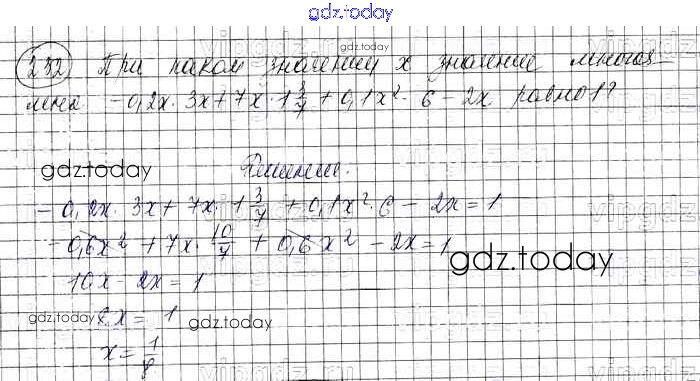 gdz.today
232) При каком значении x значение многоч-
лена -0,2x·3x+7x·1 3/7+0,1x²·6-2x равно 1?
gdz.today
Решение.
gdz.today
-0,2x·3x+7x·1 3/7+0,1x²·6-2x=1
-0,6x²+7x·10/7+0,6x²-2x=1
gdz.today
10x-2x=1
8x=1
gdz.today
gdz.today
x=1/8